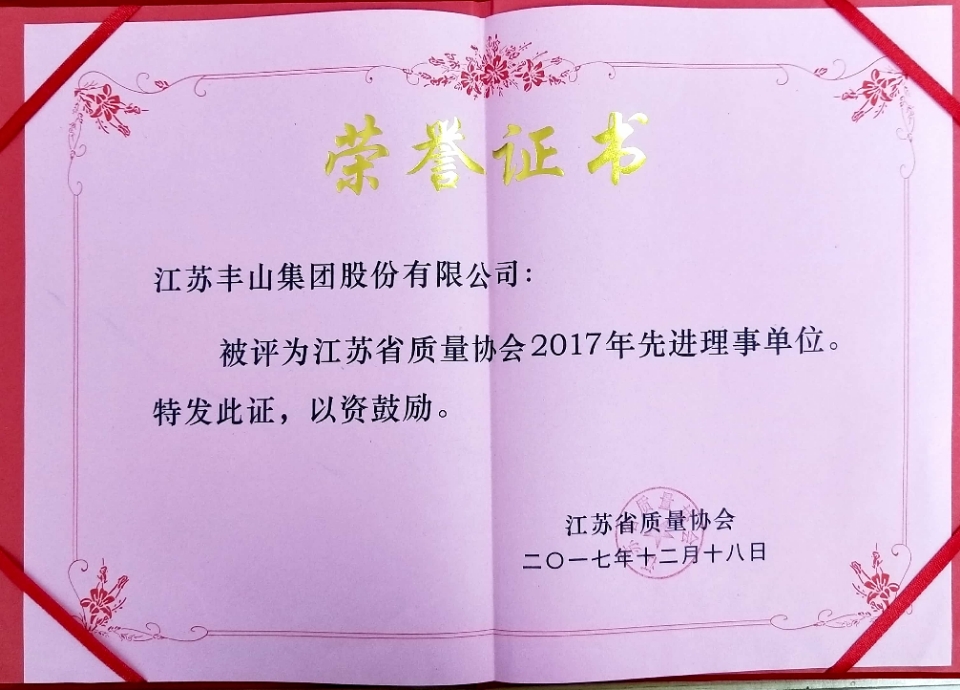 荣誉证书
江苏丰山集团股份有限公司：
被评为江苏省质量协会2017年先进理事单位。
特发此证，以资鼓励。
江苏省质量协会
二〇一七年十二月十八日